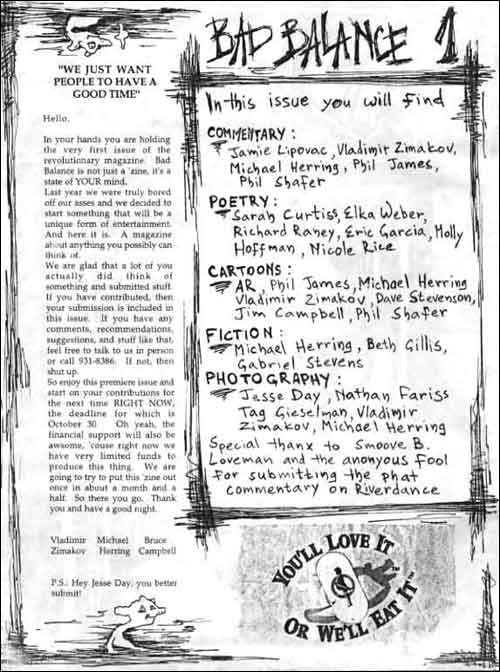 "WE JUST WANT
PEOPLE TO HAVE A
GOOD TIME"
Hello,
In your hands you are holding
the very first issue of the
revolutionary magazine. Bad
Balance is not just a 'zine, it's a
state of YOUR mind.
Last year we were truly bored
off our asses and we decided to
start something that will be a
unique form of entertainment.
And here it is. A magazine
about anything you possibly can
think of.
We are glad that a lot of you
actually did think of
something and submitted stuff.
If you have contributed, then
your submission is included in
this issue. If you have any
comments, recommendations,
suggestions, and stuff like that,
feel free to talk to us in person
or call 931-8386. If not, then
shut up.
So enjoy this premiere issue and
start on your contributions for
the next time RIGHT NOW,
the deadline for which is
October 30. Oh yeah, the
financial support will also be
awsome, 'couse right now we
have very limited funds to
produce this thing. We are
going to try to put this 'zine out
once in about a month and a
half. So there you go. Thank
you and have a good night.
Vladimir Michael Bruce
Zimakov Herring Campbell
P.S.: Hey Jesse Day, you better
submit!
BAD BALANCE 1
In this issue you will find
COMMENTARY:
Jamie Lipovac, Vladimir Zimakov,
Michael Herring, Phil James,
Phil Shafer
POETRY:
Sarah Curtiss, Elka Weber,
Richard Raney, Eric Garcia, Holly
Hoffman, Nicole Rice
CARTOONS:
AR, Phil James, Michael Herring
Vladimir Zimakov, Dave Stevenson,
Jim Campbell, Phil Shafer
FICTION:
Michael Herring, Beth Gillis,
Gabriel Stevens
PHOTOGRAPHY:
Jesse Day, Nathan Fariss
Tag Gieselman, Vladimir
Zimakov, Michael Herring
Special thanx to Smoove B.
Loveman and the anonyous fool
for submitting the phat
commentary on Riverdance
YOU'LL LOVE IT
OR WE'LL EAT IT™